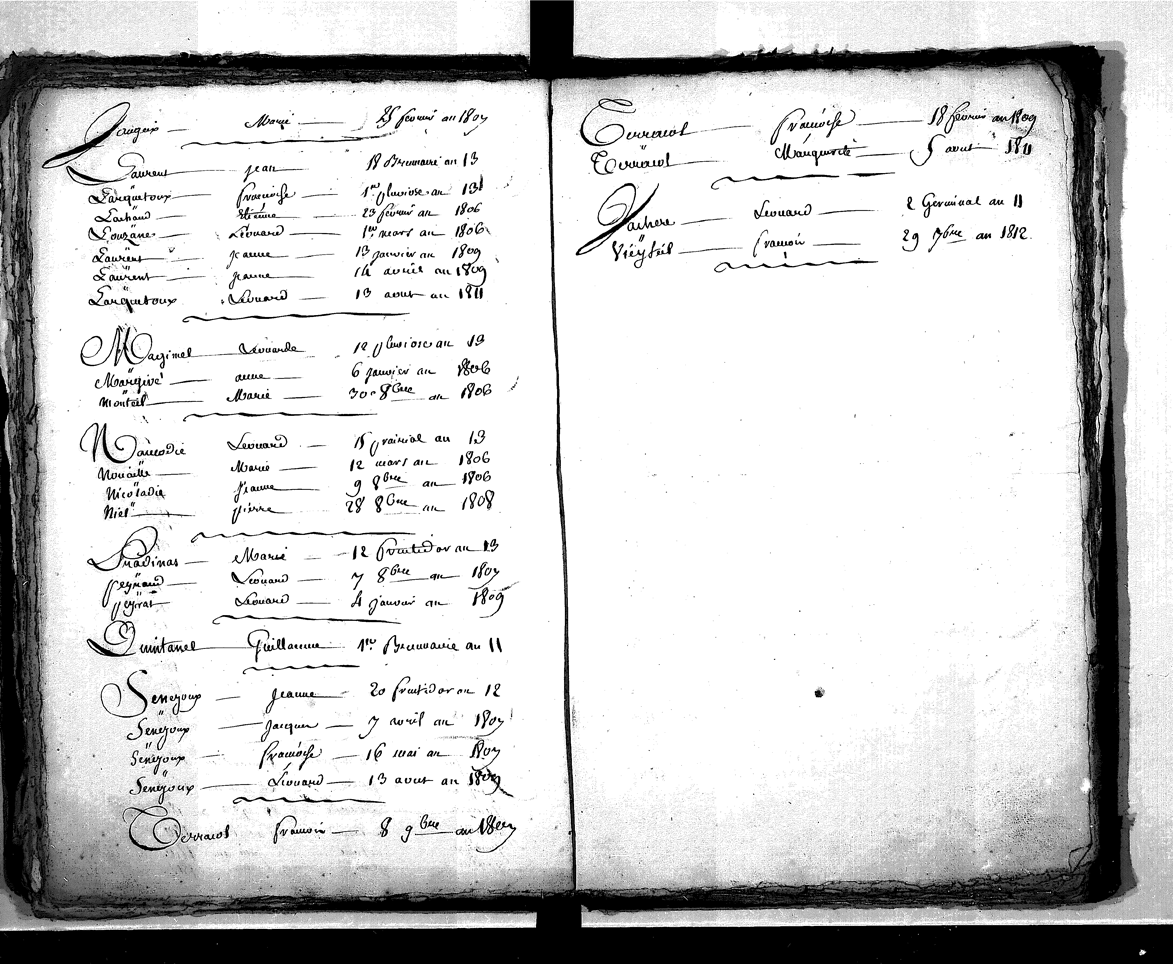 Jauguix Marie 25 fevrier an 1807
Laurent jean 18 Brumaire an 13
Larquetoux françoise 1er pluviose an 13
Lachaud Etienne 23 fevrier an 1806
Louzane Léonard 1er mars an 1806
Laurent jeanne 13 janvier an 1809
Laurent jeanne 14 avril an 1809
Larquetoux Léonard 13 aout an 1811
Mazimel Léonarde 12 pluviose an 13
Margivé anne 6 janvier an 1806
Monteil Marie 30 8bre an 1806
Naucodie Léonard 15 prairial an 13
Nouaille Marie 12 mars an 1806
Nicoladie jeanne 9 8bre an 1806
Niel pierre 28 8bre an 1808
Pradinas Marie 12 fructidor an 13
peyraud Léonard 7 8bre an 1807
peyrat Léonard 4 janvier an 1809
Quintanel Guillaume 1er Brumaire an 11
Senejoux Jeanne 20 fructidor an 12
Senejoux Jacques 7 avril an 1807
Senejoux françoise 16 mai an 1807
Senejoux Léonard 13 aout an 1809
Terracol francois 8 9bre an
Terracol françoise 18 fevrier an 1809
Terracol Marguerite 5 aout 1811
Vachere Léonard 2 Germinal an 11
Viéyfeil francois 29 7bre an 1812.